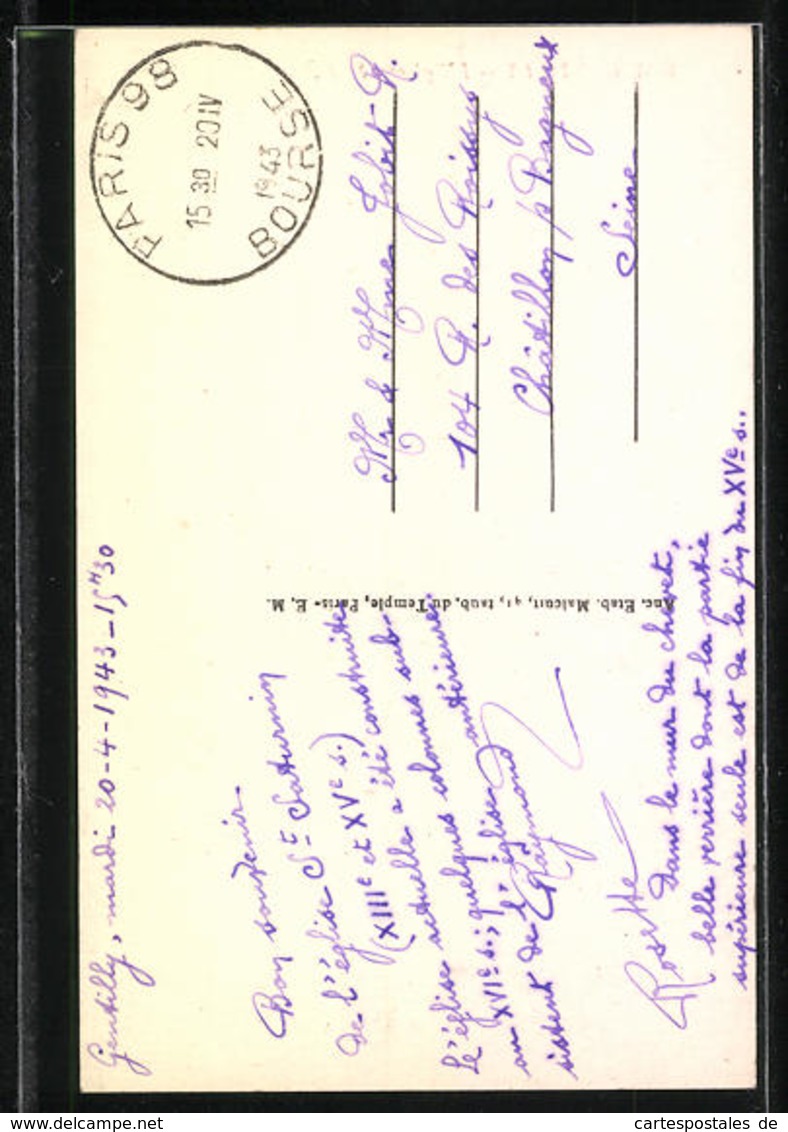 Gentilly, mardi 20-4-1943-15H30
Bon souvenir
de l'église St Saturnin
(XIIIe et XVe s.)
L'église actuelle a été construite
au XVIe s.; quelques colonnes sub-
sistent de l'église antérieure.
Raymond
Rosette
Dans le mur du chevet,
belle verrière dont la partie
supérieure seule est de la fin du XVe s.
Anc. Etab. Malcuit, 41, faub. du Temple, Paris - E. M.
PARIS 98
15 30 20 IV
1943
BOURSE
Mr & Mme R.
104 R. des
Châtillon /s Bagneux
Seine
cartespostales de